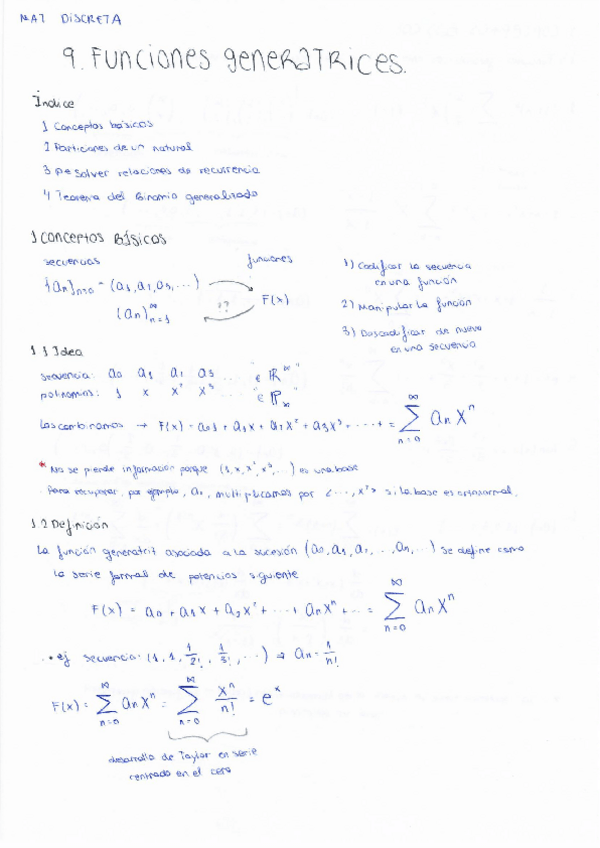 MAT DISCRETA
9. Funciones generatrices.
Índice
1 Conceptos básicos
2 Particiones de un natural
3 Resolver relaciones de recurrencia
4 Teorema del Binomio generalizado
1 Conceptos Básicos
secuencias
funciones
{an}n=0 = (a1, a2, a3, ...)
??
F(x)
{an}∞n=1
1) Codificar la secuencia
en una función
2) Manipular la función
3) Descodificar de nuevo
en una secuencia
1.1 Idea
secuencia: a0 a1 a2 a3 ... "∈ ℝ∞"
polinomios: 1 x x² x³ ... "∈ ℙ∞"
Las combinamos → F(x) = a0·1 + a1x + a2x² + a3x³ + ... = ∑∞n=0 an xⁿ
* No se pierde información porque (1, x, x², x³, ...) es una base
Para recuperar, por ejemplo, a2, multiplicamos por <..., x²> si la base es ortonormal.
1.2 Definición
La función generatriz asociada a la sucesión (a0, a1, a2, ..., an, ...) se define como
la serie formal de potencias siguiente
F(x) = a0 + a1x + a2x² + ... + anxⁿ + ... = ∑∞n=0 an xⁿ
• ej secuencia: (1, 1, 1/2!, 1/3!, ...) → an = 1/n!
F(x) = ∑∞n=0 an xⁿ = ∑∞n=0 xⁿ/n! = eˣ
desarrollo de Taylor en serie
centrado en el cero